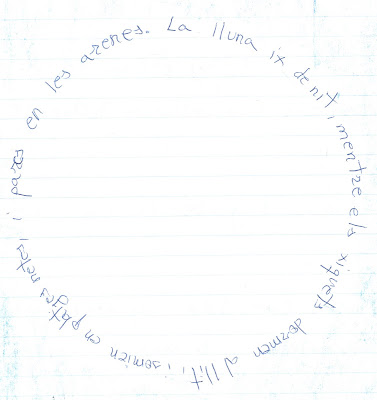 La lluna ix de nit, mentre els xiquets dormen al llit, i somien en platges netes, i pares en les arenes.